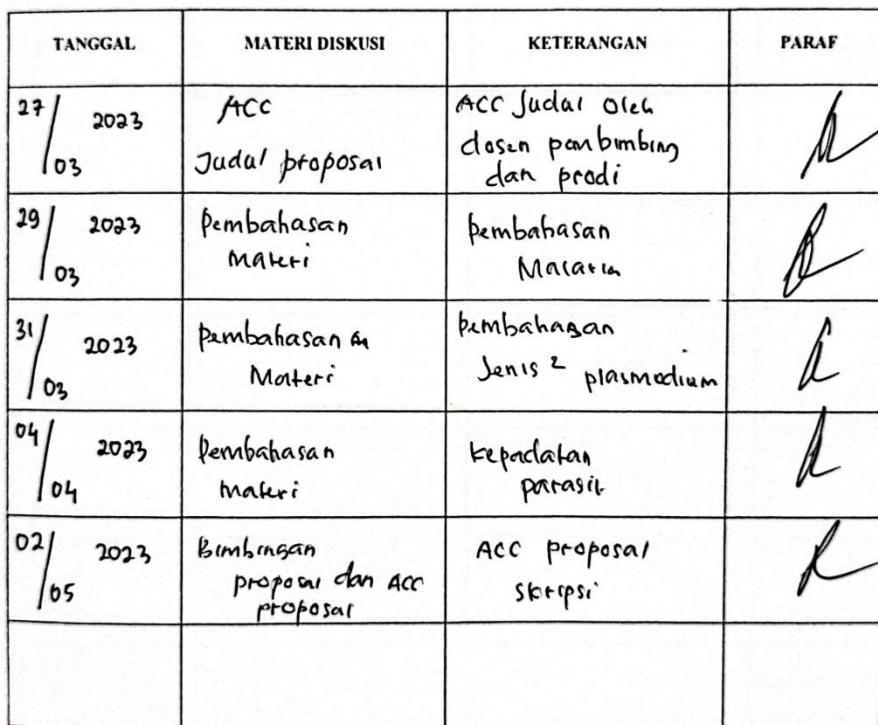 TANGGAL MATERI DISKUSI KETERANGAN PARAF
27/03 2023
ACC
Judul proposal
ACC Judul Oleh
dosen pembimbing
dan prodi
29/03 2023
Pembahasan
Materi
Pembahasan
Malaria
31/03 2023
Pembahasan
Materi
Pembahasan
Jenis 2 plasmodium
04/04 2023
Pembahasan
materi
Kepadatan
parasit
02/05 2023
Bimbingan
proposal dan ACC
proposal
ACC proposal
skripsi